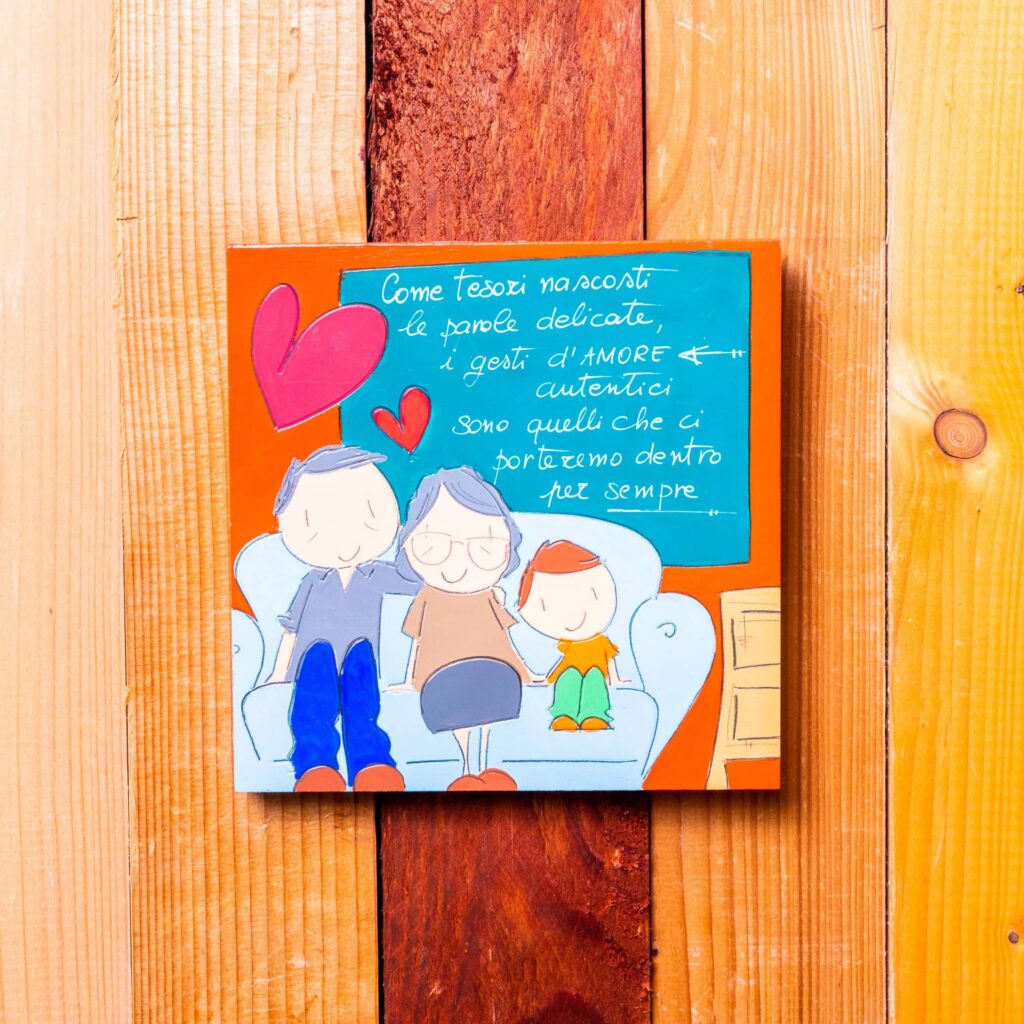 Come tesori nascosti
le parole delicate,
i gesti d'AMORE
autentici
sono quelli che ci
porteremo dentro
per sempre